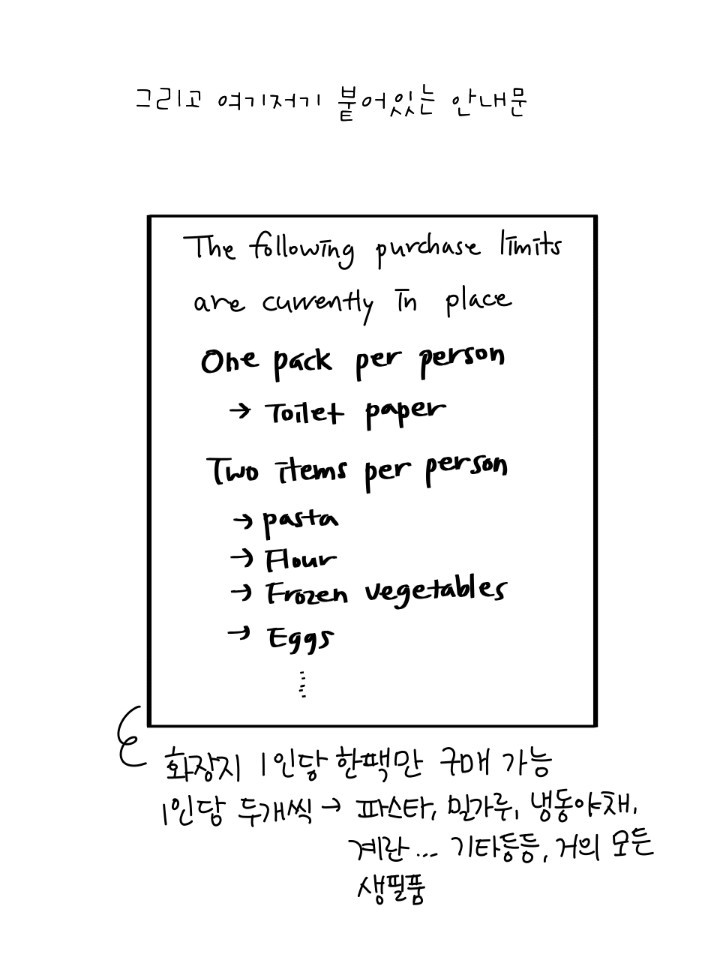 그리고 여기저기 붙어있는 안내문
The following purchase limits
are currently in place
One pack per person
→ Toilet paper
Two items per person
→ pasta
→ Flour
→ Frozen vegetables
→ Eggs
⋮
화장지 1인당 한팩만 구매 가능
1인당 두개씩 → 파스타, 밀가루, 냉동야채,
계란... 기타등등, 거의 모든
생필품